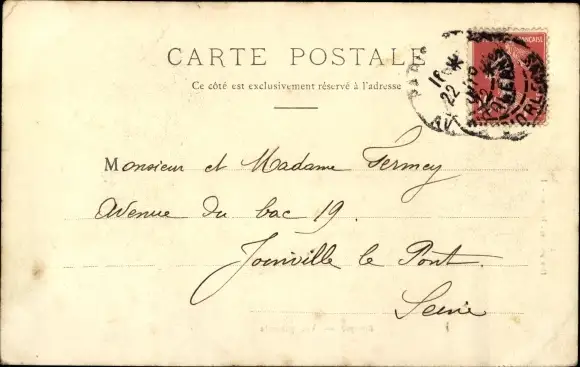 CARTE POSTALE
Ce côté est exclusivement réservé à l'adresse
Monsieur et Madame Fermey
Avenue du bac 19.
Joinville le Pont.
Seine